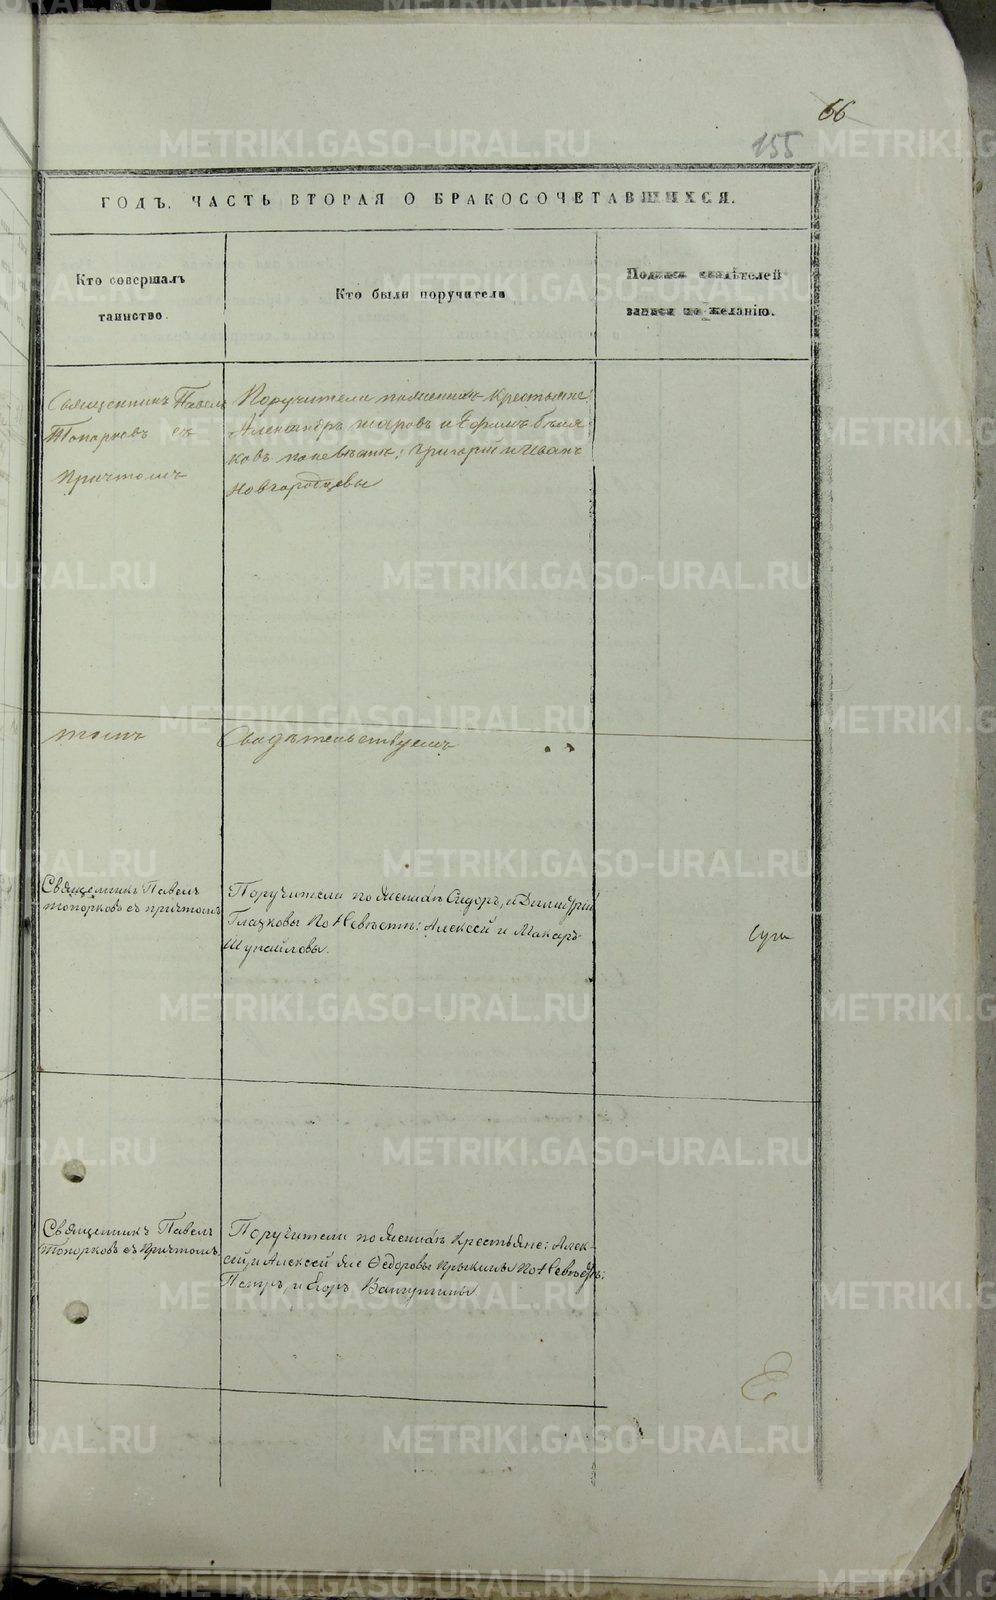 66
155
ГОДЪ. ЧАСТЬ ВТОРАЯ О БРАКОСОЧЕТАВШИХСЯ.
Кто совершалъ
таинство.
Кто были поручители
Подписи свидѣтелей
записи по желанію.
Священникъ Павелъ
Топорковъ съ
Причтомъ
Поручители по женихѣ Крестьяне:
Александръ и Ефимъ
ковъ по невѣстѣ: Григорій и Иванъ
Новгородцевы
томъ
Свидѣтельствуемъ
Священникъ Павелъ
Топорковъ съ причтомъ
Поручители по Женихѣ Сидоръ, и Димитрий
Глазковы По Невѣстѣ: Алексей и Макаръ
Шупайловы.
Священникъ Павелъ
Топорковъ съ Причтомъ
Поручители по Женихѣ Крестьяне: Алек-
сей, и Алексей же Ѳедоровы По Невѣстѣ:
Петръ, и Егоръ
METRIKI.GASO-URAL.RU